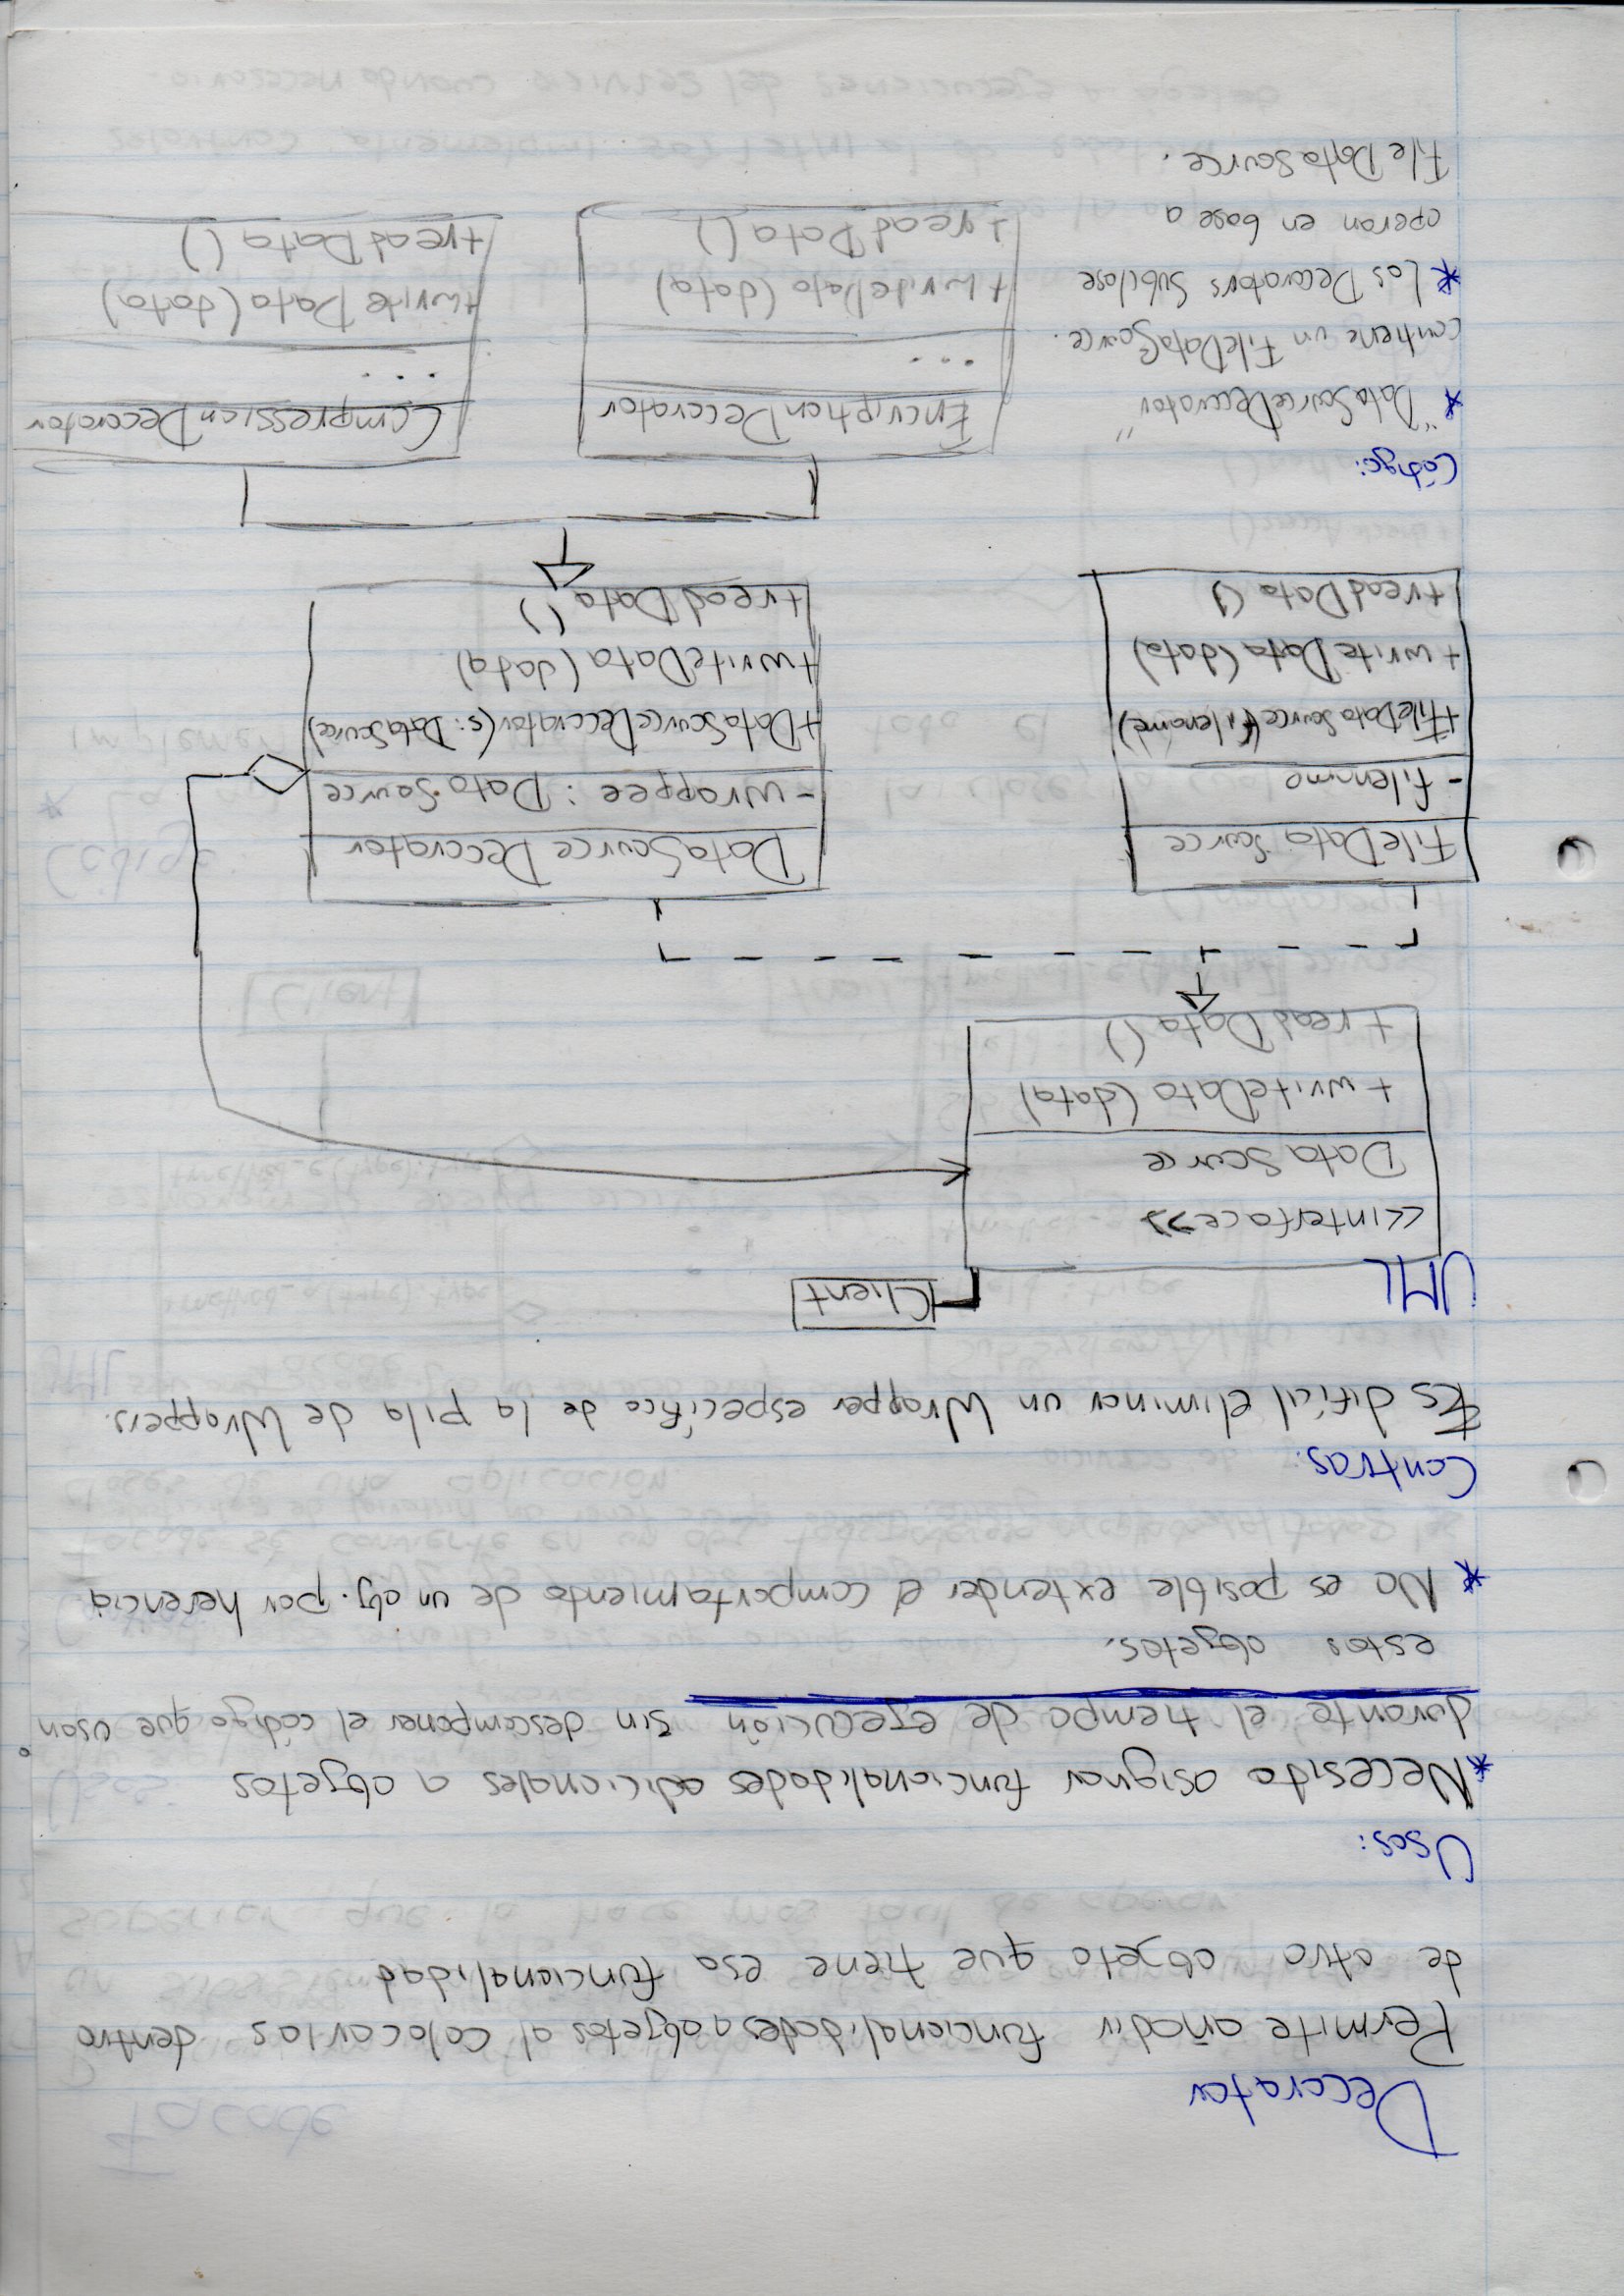 Decorator
Permite añadir funcionalidades a objetos al colocarlos dentro
de otro objeto que tiene esa funcionalidad
Usos:
* Necesito asignar funcionalidades adicionales a objetos
durante el tiempo de ejecución sin descomponer el código que usan
estos objetos.
* No es posible extender el comportamiento de un obj. por herencia
Contras:
Es difícil eliminar un Wrapper específico de la pila de Wrappers.
UML
Client
<<interface>>
Data Source
+ writeData (data)
+ readData ()
FileData Source
- filename
+FileDataSource(filename)
+ writeData (data)
+readData ()
DataSourceDecorator
- wrappee : DataSource
+DataSourceDecorator(s: DataSource)
+writeData (data)
+readData ()
Código:
* "DataSourceDecorator"
contiene un FileDataSource.
* Los Decorators Subclase
operan en base a
FileDataSource.
EncriptionDecorator
...
+ writeData (data)
+ readData ()
CompressionDecorator
...
+write Data (data)
+readData ()